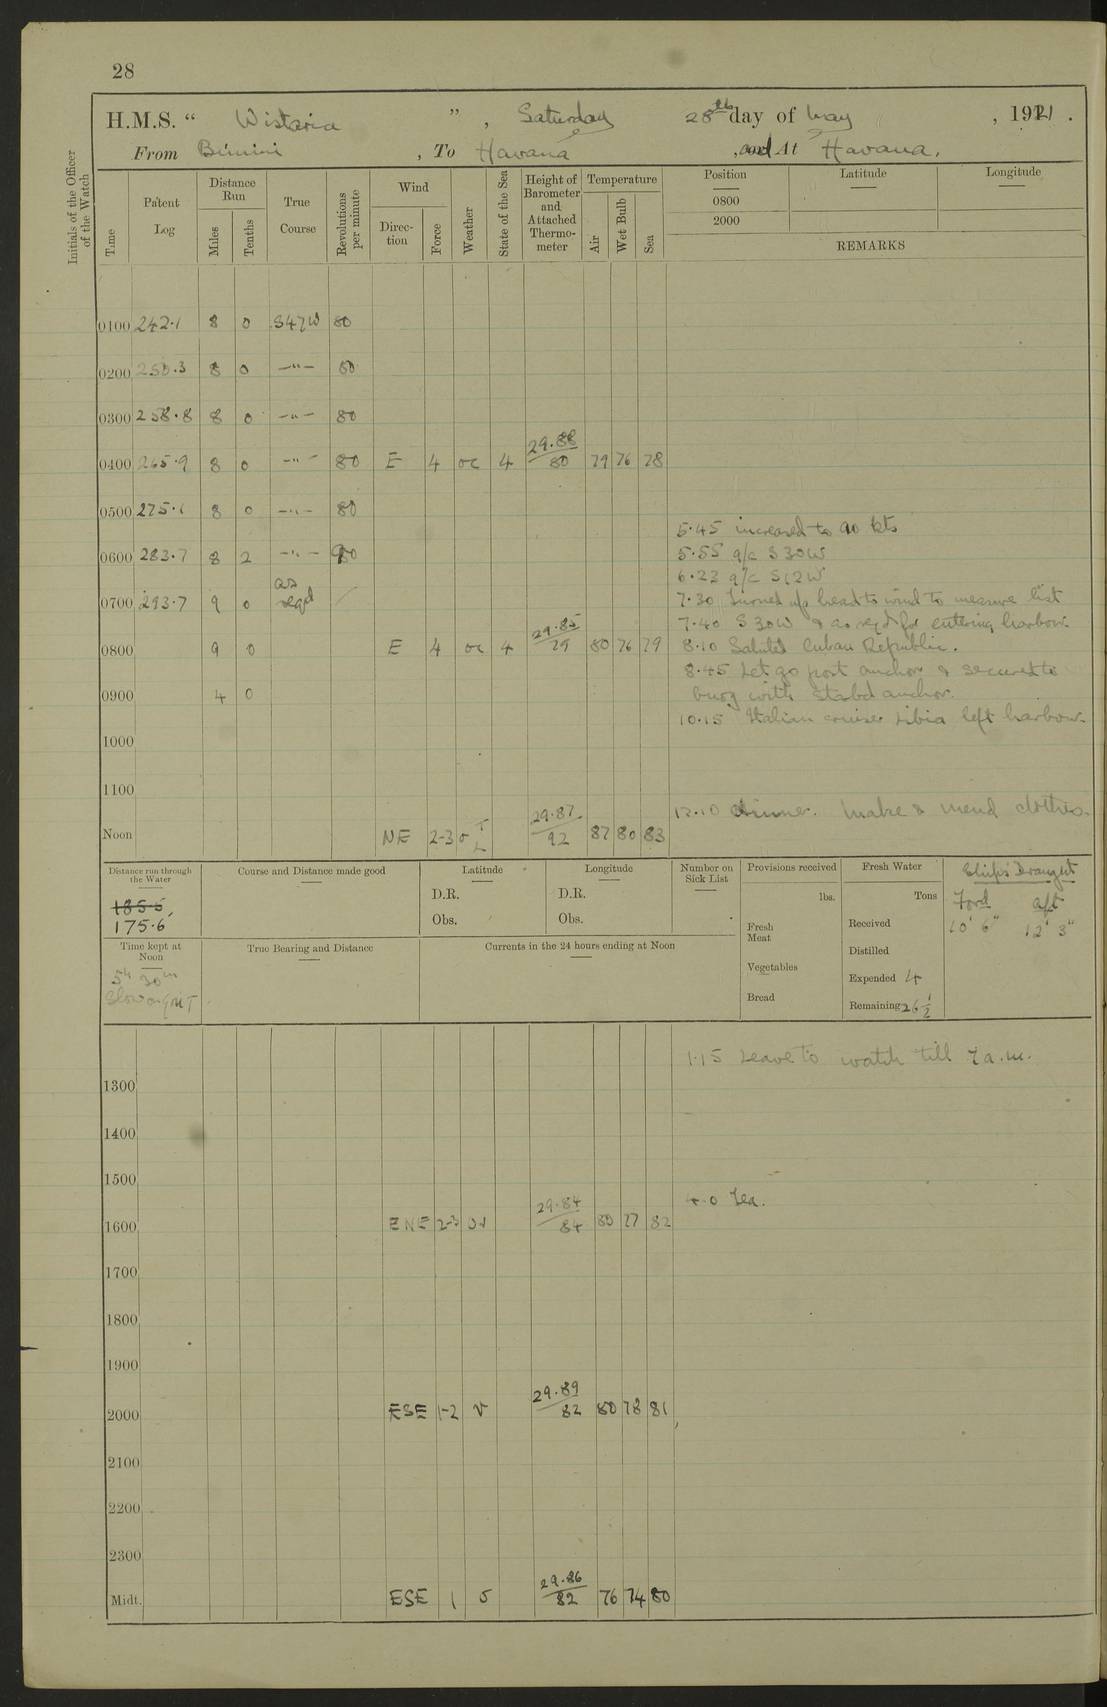 28
H.M.S. “ Wistaria ” , Saturday 28th day of May , 1921 .
From Bimini , To Havana , and At Havana.
Initials of the Officer of the Watch
Time
Patent Log
Distance Run
Miles
Tenths
True Course
Revolutions per minute
Wind
Direc-tion
Force
Weather
State of the Sea
Height of Barometer and Attached Thermo-meter
Temperature
Air
Wet Bulb
Sea
Position
Latitude
Longitude
0800
2000
REMARKS
0100 242.1 8 0 S47W 80
0200 250.3 8 0 —"— 80
0300 258.8 8 0 —"— 80
29.88
0400 265.9 8 0 —"— 80 E 4 oc 4 80 79 76 78
0500 275.1 8 0 —"— 80
5.45 increased to 90 kts
0600 283.7 8 2 —"— 90 5.55 a/c S30W
6.22 a/c S12W
as
0700 293.7 9 0 reqd 7.30 Turned up head to wind to measure list
7.40 S30W & as reqd for entering harbour.
29.85
0800 9 0 E 4 oc 4 79 80 76 79 8.10 Saluted Cuban Republic.
8.45 Let go port anchor & secured to
0900 4 0 buoy with starbd anchor.
10.15 Italian cruiser Libia left harbour.
1000
1100
12.10 dinner. Make & mend clothes.
29.87
Noon NE 2-3 92 87 80 83
Distance run through the Water
185.5,
175.6
Course and Distance made good
Latitude
D.R.
Obs.
Longitude
D.R.
Obs.
Number on Sick List
Provisions received
lbs.
Fresh Meat
Vegetables
Bread
Fresh Water
Tons
Received
Distilled
Expended 4
Remaining 26 1/2
Ship's Draught
Ford aft
10' 6" 12' 3"
Time kept at Noon
5h 30m
Slow on GMT
True Bearing and Distance
Currents in the 24 hours ending at Noon
1.15 Leave to watch till 7 a.m.
1300
1400
1500
4.0 Tea.
29.84
1600 ENE 2-3 84 80 77 82
1700
1800
1900
29.89
2000 ESE 1-2 82 80 78 81
2100
2200
2300
29.86
Midt. ESE 1 82 76 74 80